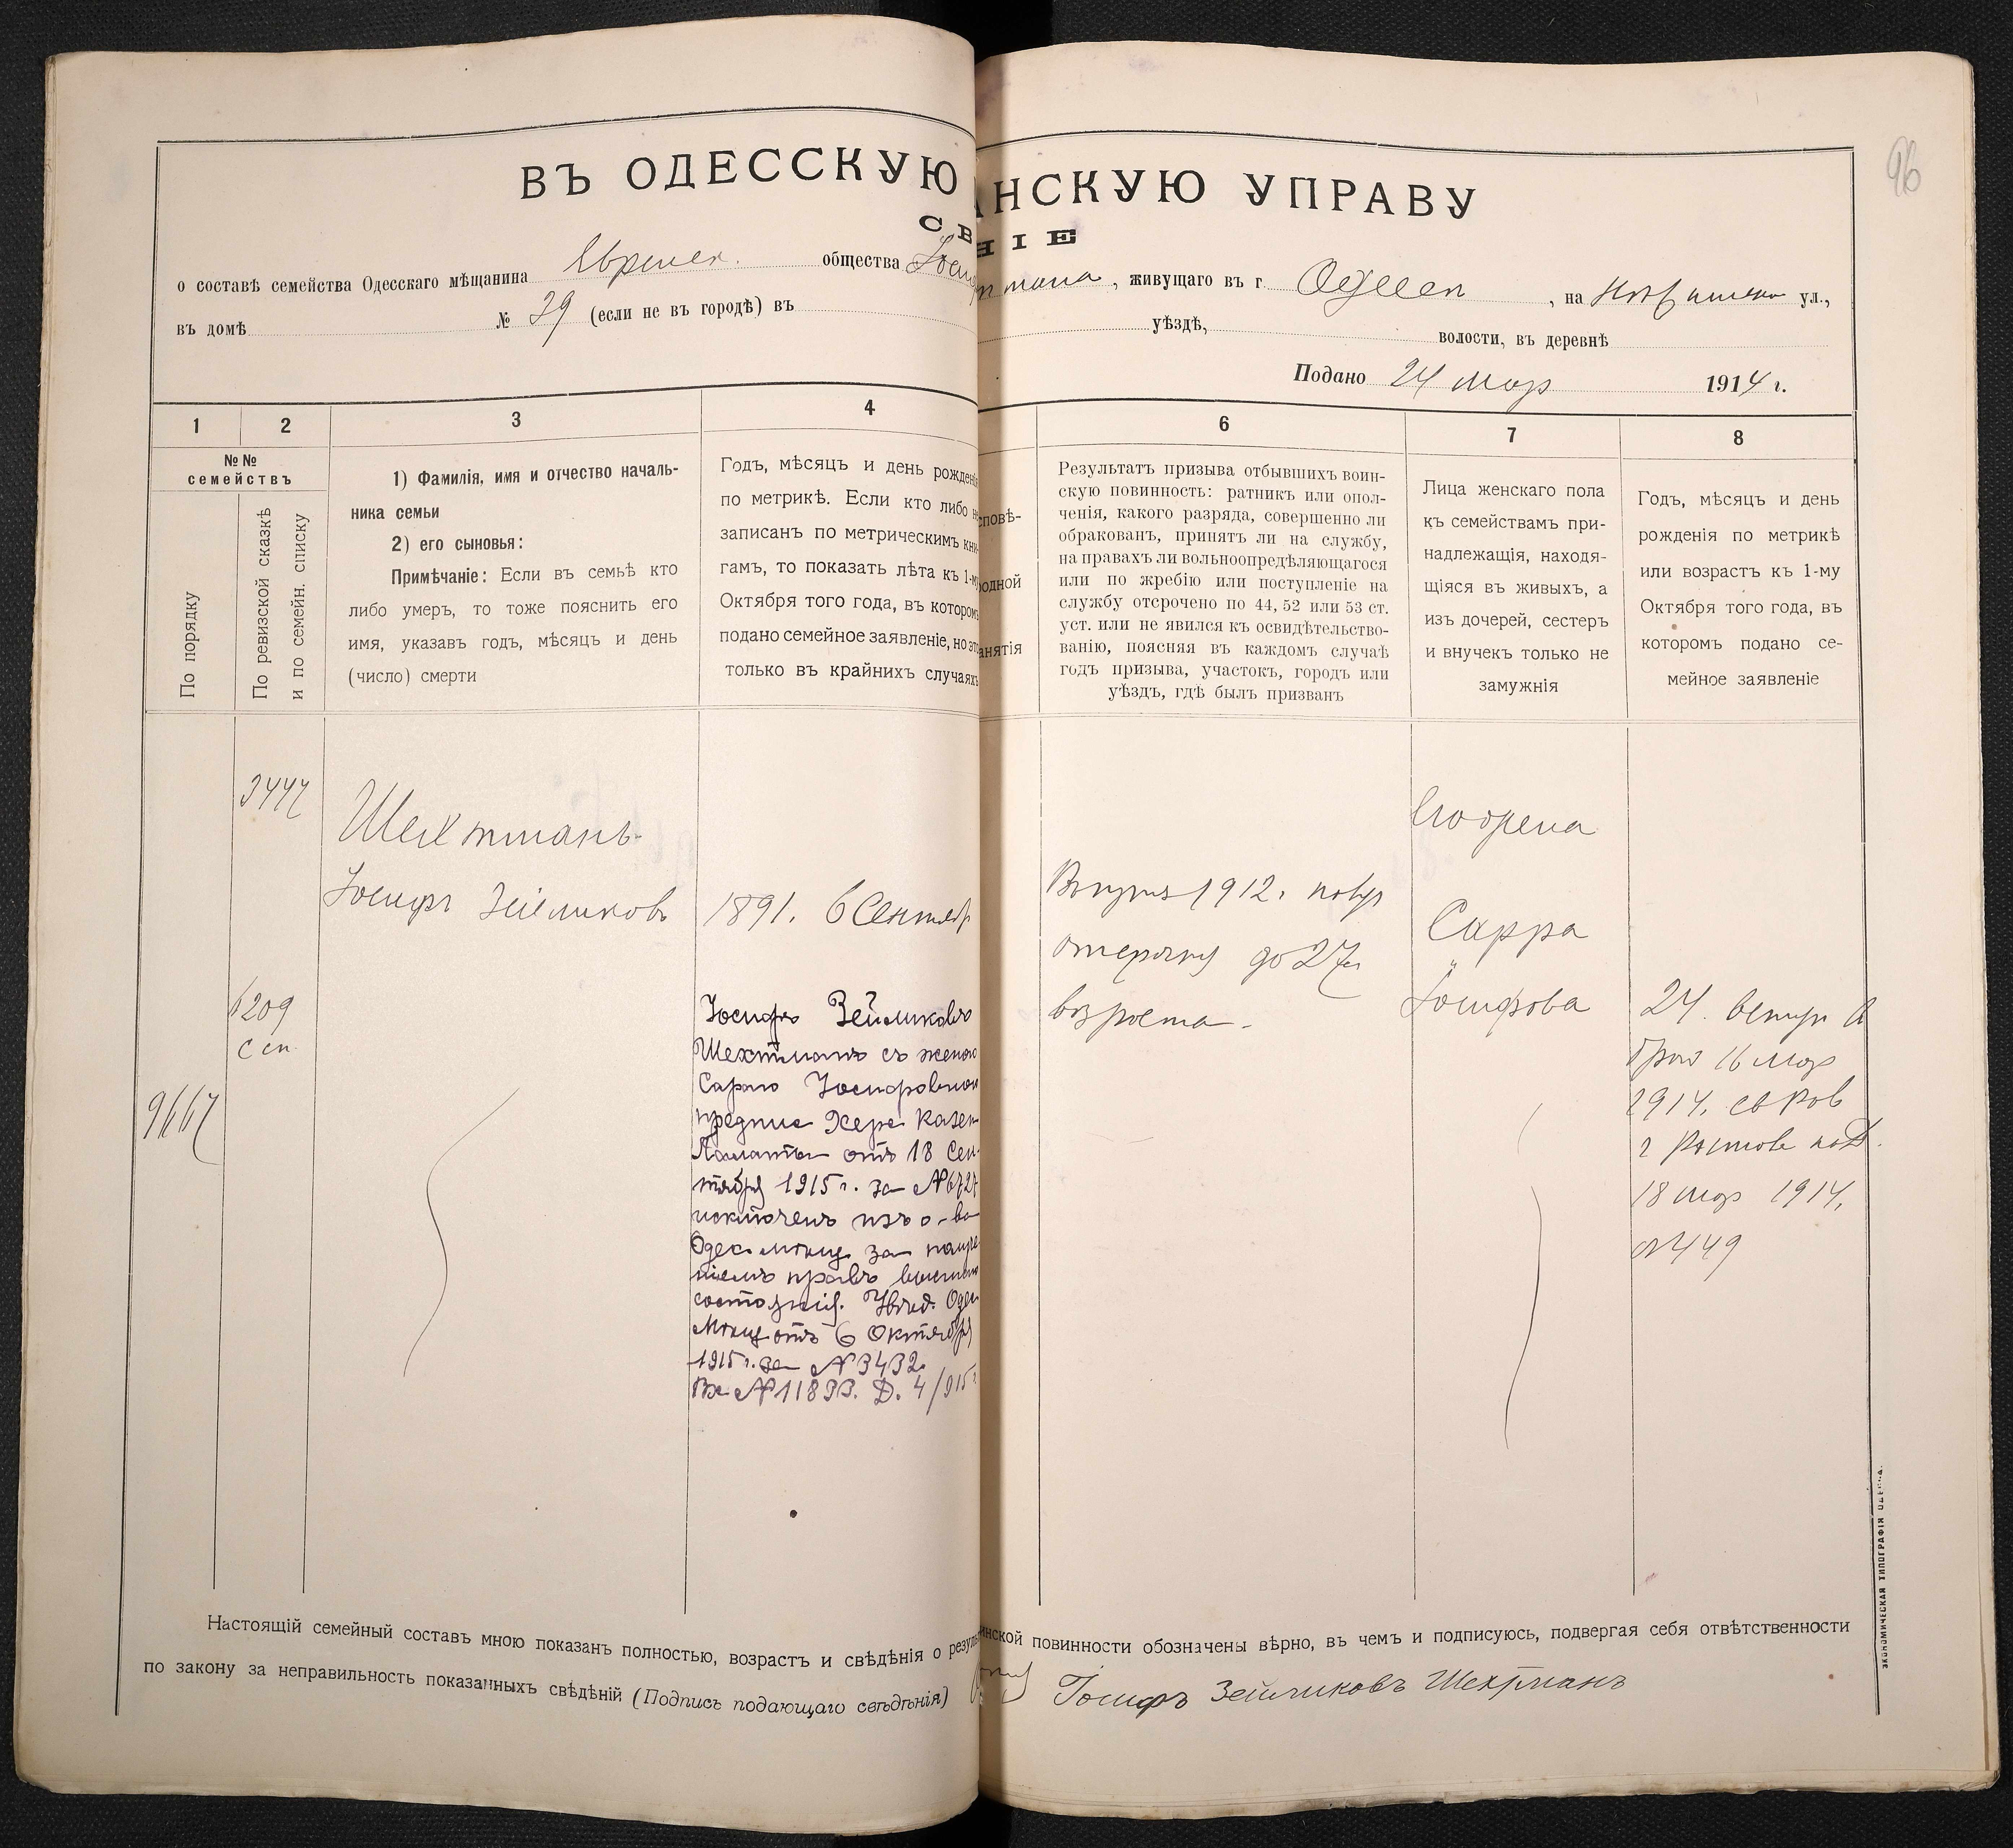 96
ВЪ ОДЕССКУЮ АНСКУЮ УПРАВУ
СВ НІЕ
о составѣ семейства Одесскаго мѣщанина общества , живущаго въ г. , на ул.,
въ домѣ № 29 (если не въ городѣ) въ уѣздѣ, волости, въ деревнѣ
Подано 24 мар 1914 г.
1 2 3 4 6 7 8
№№ семействъ
По порядку
По ревизской сказкѣ
и по семейн. списку
1) Фамилія, имя и отчество началь-
ника семьи
2) его сыновья:
Примѣчаніе: Если въ семьѣ кто
либо умеръ, то тоже пояснить его
имя, указавъ годъ, мѣсяцъ и день
(число) смерти
Годъ, мѣсяцъ и день рожденія
по метрикѣ. Если кто либо не
записанъ по метрическимъ кни-
гамъ, то показать лѣта къ 1-му
Октября того года, въ которомъ
подано семейное заявленіе, но это
только въ крайнихъ случаяхъ
сповѣ-
родной
анятія
Результатъ призыва отбывшихъ воин-
скую повинность: ратникъ или опол-
ченія, какого разряда, совершенно ли
обракованъ, принятъ ли на службу,
на правахъ ли вольноопредѣляющагося
или по жребію или поступленіе на
службу отсрочено по 44, 52 или 53 ст.
уст. или не явился къ освидѣтельство-
ванію, поясняя въ каждомъ случаѣ
годъ призыва, участокъ, городъ или
уѣздъ, гдѣ былъ призванъ
Лица женскаго пола
къ семействамъ при-
надлежащія, находя-
щіяся въ живыхъ, а
изъ дочерей, сестеръ
и внучекъ только не
замужнія
Годъ, мѣсяцъ и день
рожденія по метрикѣ
или возрастъ къ 1-му
Октября того года, въ
которомъ подано се-
мейное заявленіе
Шехтманъ
Іосифъ Зейликовъ
1891. 6 Сентябр
6209
Сен
9667
Іосифъ Зейликовъ
Шехтманъ съ женою
Сарою Іосифовною
предпис Херс Казен
Палаты отъ 18 Сен-
тября 1915 г. за № 6727
исключенъ изъ о-ва
Одес. мѣщ за
правъ
состоянія. Увѣд. Одес
Мѣщ отъ 6 Октября
1915 г. за № 3432
Вх № 11833. Д. 4/915 г
1912.
до 27
возраста
Сарра
Іосифова
24.
16 мар
1914.
г Ростове на Д.
18 мар 1914.
№ 449
Настоящій семейный составъ мною показанъ полностью, возрастъ и свѣдѣнія о резуль инской повинности обозначены вѣрно, въ чемъ и подписуюсь, подвергая себя отвѣтственности
по закону за неправильность показанныхъ свѣдѣній (Подпись подающаго свѣдѣнія) Іосифъ Зейликовъ Шехтманъ
ЭКОНОМИЧЕСКАЯ ТИПОГРАФІЯ ОДЕССА.